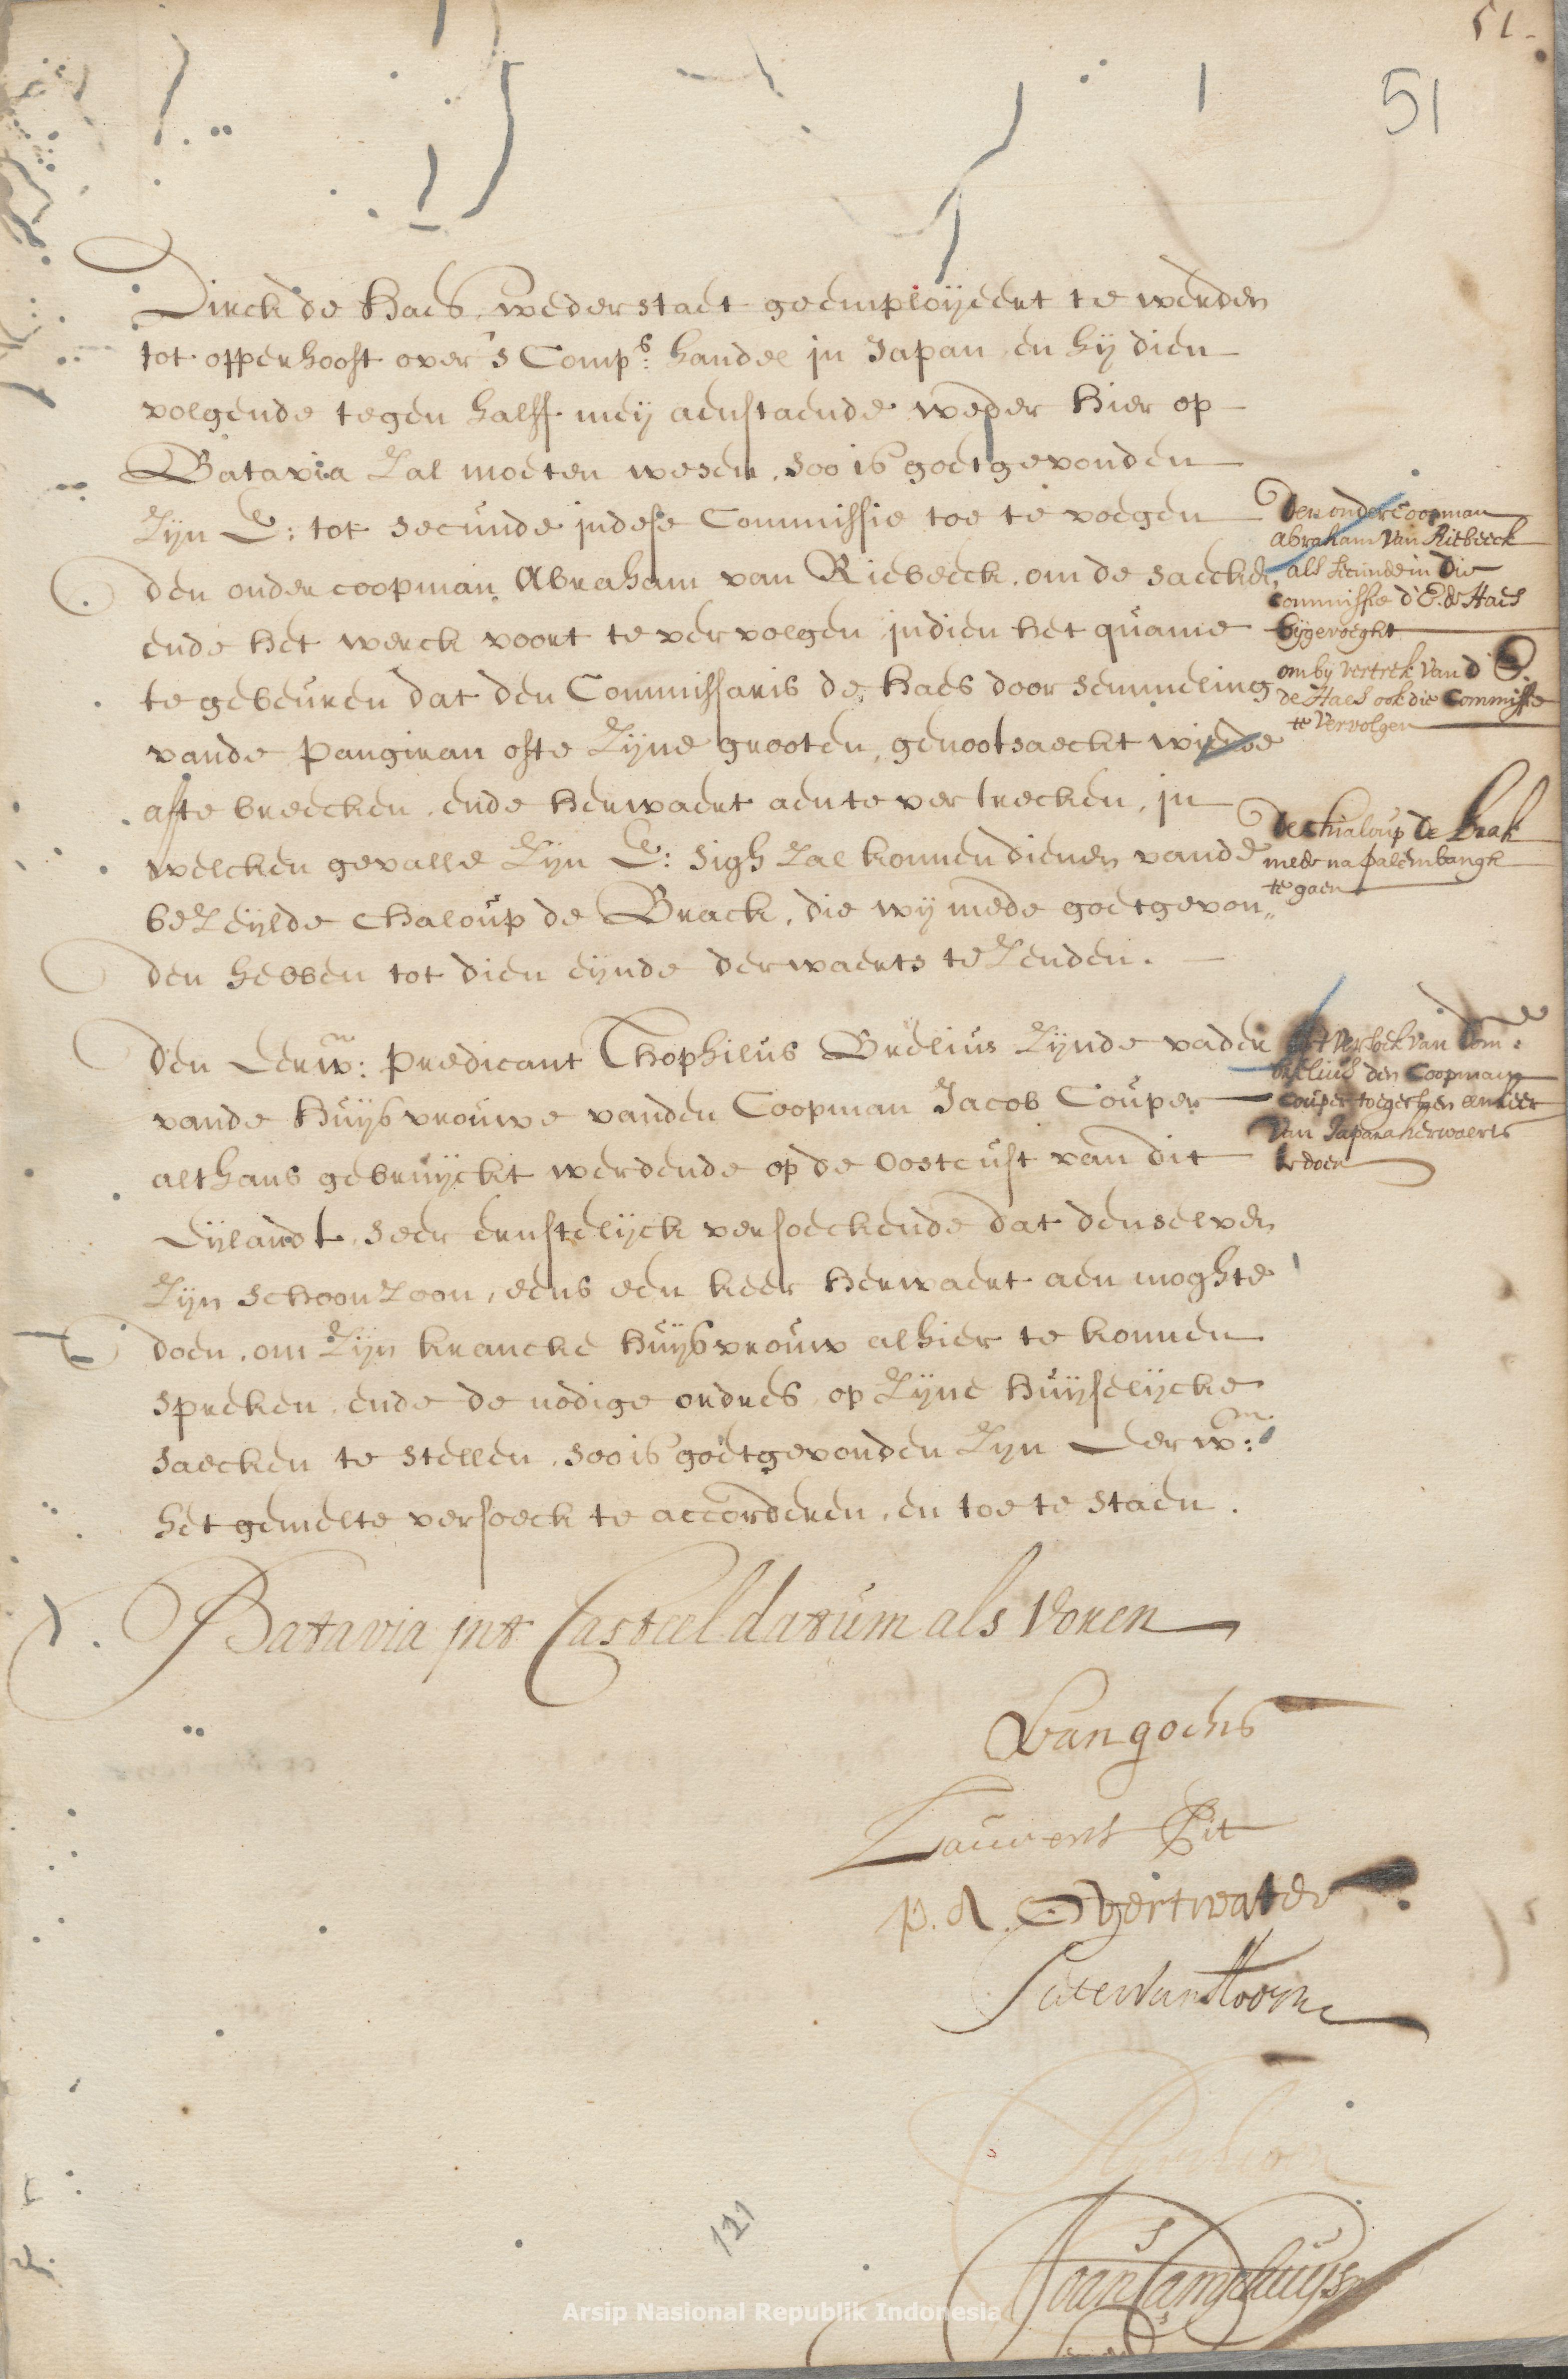 51.
51
Dirck de Haes, weder staet geemploijeert te werden
tot opperhooft over 's Comps: handel in Japan, en hij dien
volgende tegen halff meij aenstaende weder hier op
Batavia zal moeten wesen, soo is goetgevonden
Zijn E: tot secunde in dese Commissie toe te voegen
den ondercoopman Abraham van Riebeeck, om de saecken
ende het werck voort te vervolgen indien het quame
te gebeuren dat den Commissaris de Haes door semmeling
vande pangiran ofte Zijne grooten, genootsaeckt wierde
aff te breecken, ende herwaert aen te vertrecken, in
welcken gevalle Zijn E: sigh zal konnen dienen vande
bezeijlde chaloup de Brack, die wij mede goetgevon„
den hebben tot dien eijnde derwaerts te zenden.
Den ondercoopman
abraham Van Riebeeck
als secunde in die
commissie d'E. de Haes
bijgevoeght
om bij vertrek van d'E.
de Haes ook die commissie
te vervolgen
De chialoup De brak
mede na palembangh
te gaen
Den Eerwn: predicant Thophilus Brelius zijnde vader
vande huijsvrouwe vanden Coopman Jacob Couper
althans gebruijckt werdende op de Oostcust van dit
Eijlandt, seer ernstelijck versoeckende dat denselven
Zijn schoonzoon, eens een keer herwaert aen moghte
doen, om Zijn krancke huijsvrouw alhier te konnen
spreken, ende de nodige ordres op Zijne huijselijcke
saecken te stellen, soo is goetgevonden Zijn Eerwn:
het gemelte versoeck te accorderen, en toe te staen.
versoek van dom:
brelius den Coopman
Couper toegestaen een keer
van Japara herwaerts
te doen
Batavia int Casteel datum als voren
Van goens
Lauvens Pit
p. A. Overtwater
Pieter Van Hoorn
Joan Camphuijs
121
Arsip Nasional Republik Indonesia